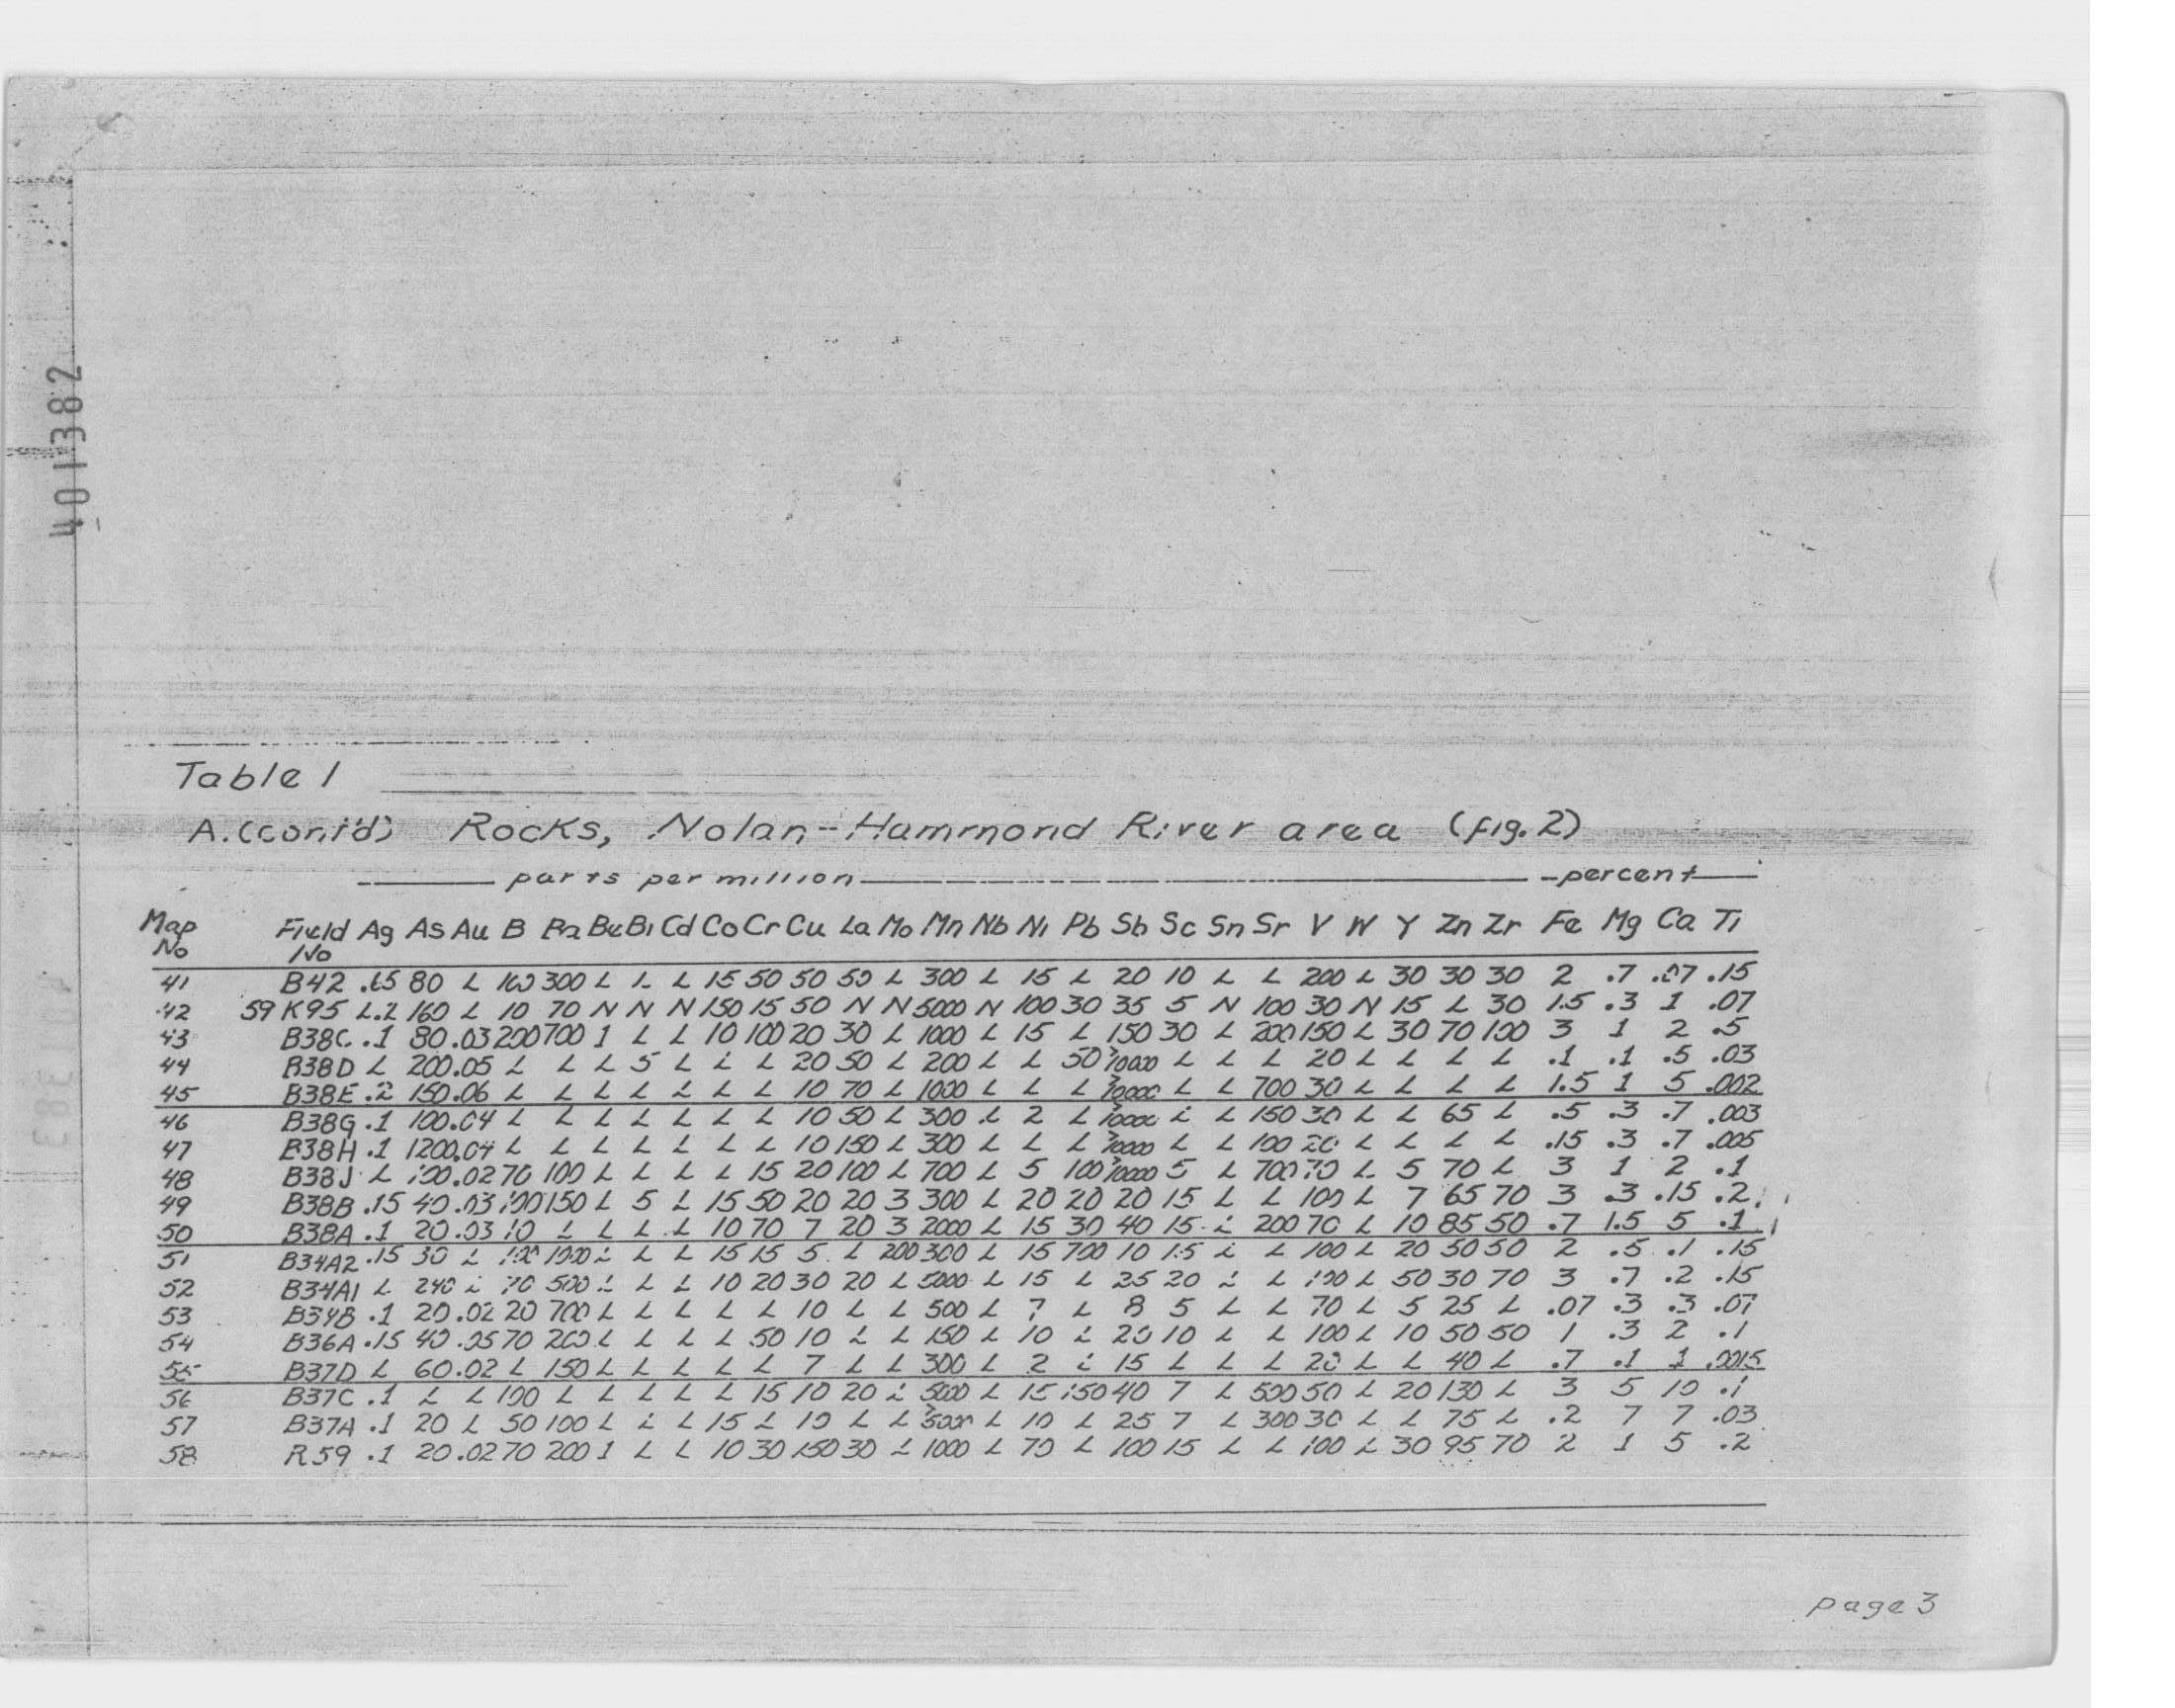 401382
Table 1
A. (cont'd) Rocks, Nolan-Hammond River area (fig. 2)
parts per million percent
Map No Field No Ag As Au B Ba Be Bi Cd Co Cr Cu La Mo Mn Nb Ni Pb Sb Sc Sn Sr V W Y Zn Zr Fe Mg Ca Ti
41 B42 .15 80 L 100 300 L L L 15 50 50 50 L 300 L 15 L 20 10 L L 200 L 30 30 30 2 .7 .07 .15
42 59 K95 L.2 160 L 10 70 N N N 150 15 50 N N 5000 N 100 30 35 5 N 100 30 N 15 L 30 1.5 .3 1 .07
43 B38C .1 80 .03 200 700 1 L L 10 100 20 30 L 1000 L 15 L 150 30 L 200 150 L 30 70 100 3 1 2 .5
44 B38D L 200 .05 L L L 5 L L L 20 50 L 200 L L 50 >10000 L L L 20 L L L L .1 .1 .5 .03
45 B38E .2 150 .06 L L L L L L L 10 70 L 1000 L L L >10000 L L 700 30 L L L L 1.5 1 5 .002
46 B38G .1 100 .04 L L L L L L L 10 50 L 300 L 2 L >10000 L L 150 30 L L 65 L .5 .3 .7 .003
47 B38H .1 1200 .04 L L L L L L L 10 150 L 300 L L L >10000 L L 100 20 L L L L .15 .3 .7 .005
48 B38J L 100 .02 70 100 L L L L 15 20 100 L 700 L 5 100 >10000 5 L 700 70 L 5 70 L 3 1 2 .1
49 B38B .15 40 .03 100 150 L 5 L 15 50 20 20 3 300 L 20 20 20 15 L L 100 L 7 65 70 3 .3 .15 .2
50 B38A .1 20 .03 10 L L L L 10 70 7 20 3 2000 L 15 30 40 15 L 200 70 L 10 85 50 .7 1.5 5 .1
51 B34A2 .15 30 L 100 1000 L L L 15 15 5 L 200 300 L 15 700 10 15 L L 100 L 20 50 50 2 .5 .1 .15
52 B34A1 L 240 L 70 500 L L L 10 20 30 20 L 5000 L 15 L 25 20 L L 100 L 50 30 70 3 .7 .2 .15
53 B34B .1 20 .02 20 700 L L L L L 10 L L 500 L 7 L 8 5 L L 70 L 5 25 L .07 .3 .3 .07
54 B36A .15 40 .05 70 200 L L L L 50 10 L L 150 L 10 L 20 10 L L 100 L 10 50 50 1 .3 2 .1
55 B37D L 60 .02 L 150 L L L L L 7 L L 300 L 2 L 15 L L L 20 L L 40 L .7 .1 1 .0015
56 B37C .1 L L 100 L L L L L 15 10 20 L 5000 L 15 150 40 7 L 500 50 L 20 130 L 3 5 10 .1
57 B37A .1 20 L 50 100 L L L 15 L 10 L L >5000 L 10 L 25 7 L 300 30 L L 75 L .2 7 7 .03
58 R59 .1 20 .02 70 200 1 L L 10 30 150 30 L 1000 L 70 L 100 15 L L 100 L 30 95 70 2 1 5 .2
page 3